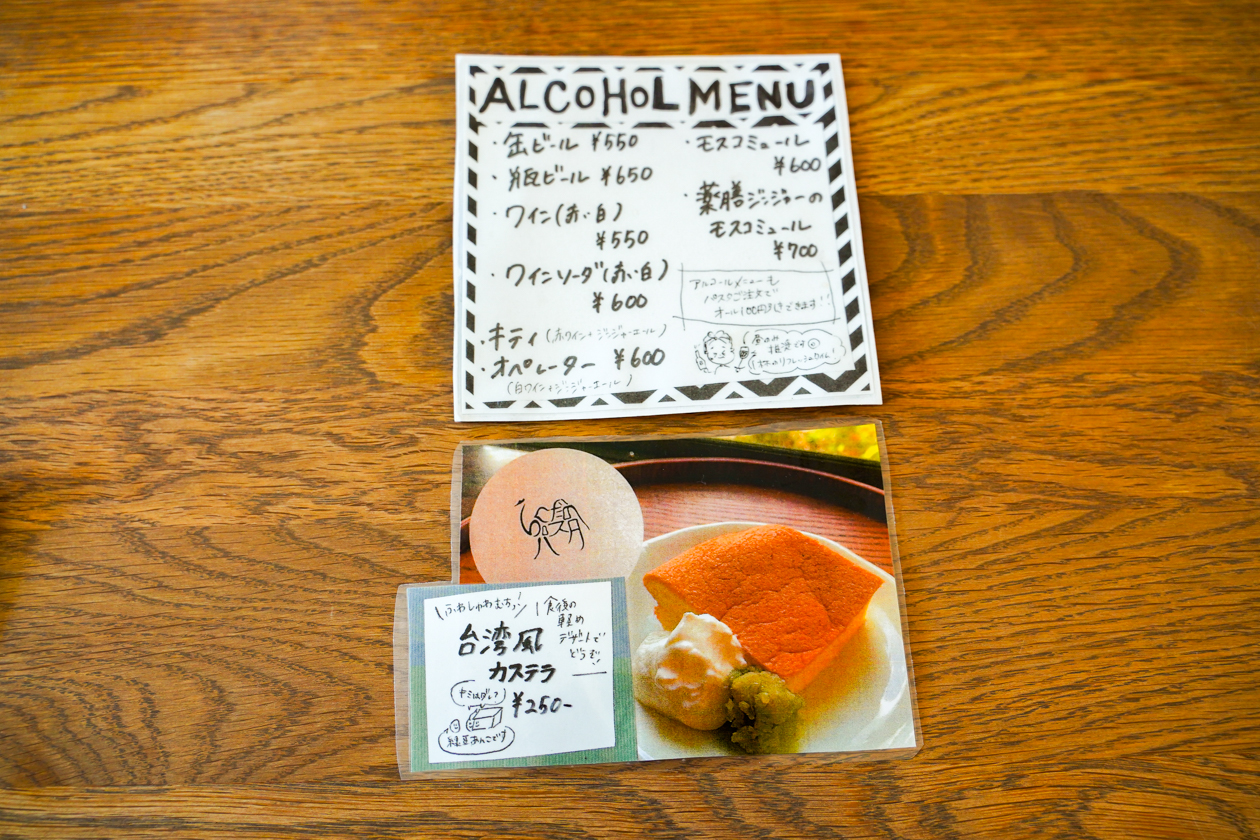 ALCOHOL MENU
・缶ビール ¥550
・瓶ビール ¥650
・ワイン(赤・白)
¥550
・ワインソーダ(赤・白)
¥600
・キティ(赤ワイン+ジンジャーエール)
・オペレーター ¥600
(白ワイン+ジンジャーエール)
・モスコミュール
¥600
・薬膳ジンジャーの
モスコミュール
¥700
アルコールメニューも
ご注文で
オール100円引きできます!!
昼のみ
推奨です
\ふわしゅわむちっ/
台湾風
カステラ
¥250-
食後の
軽め
デザートで
どうぞ!
緑豆あんこです